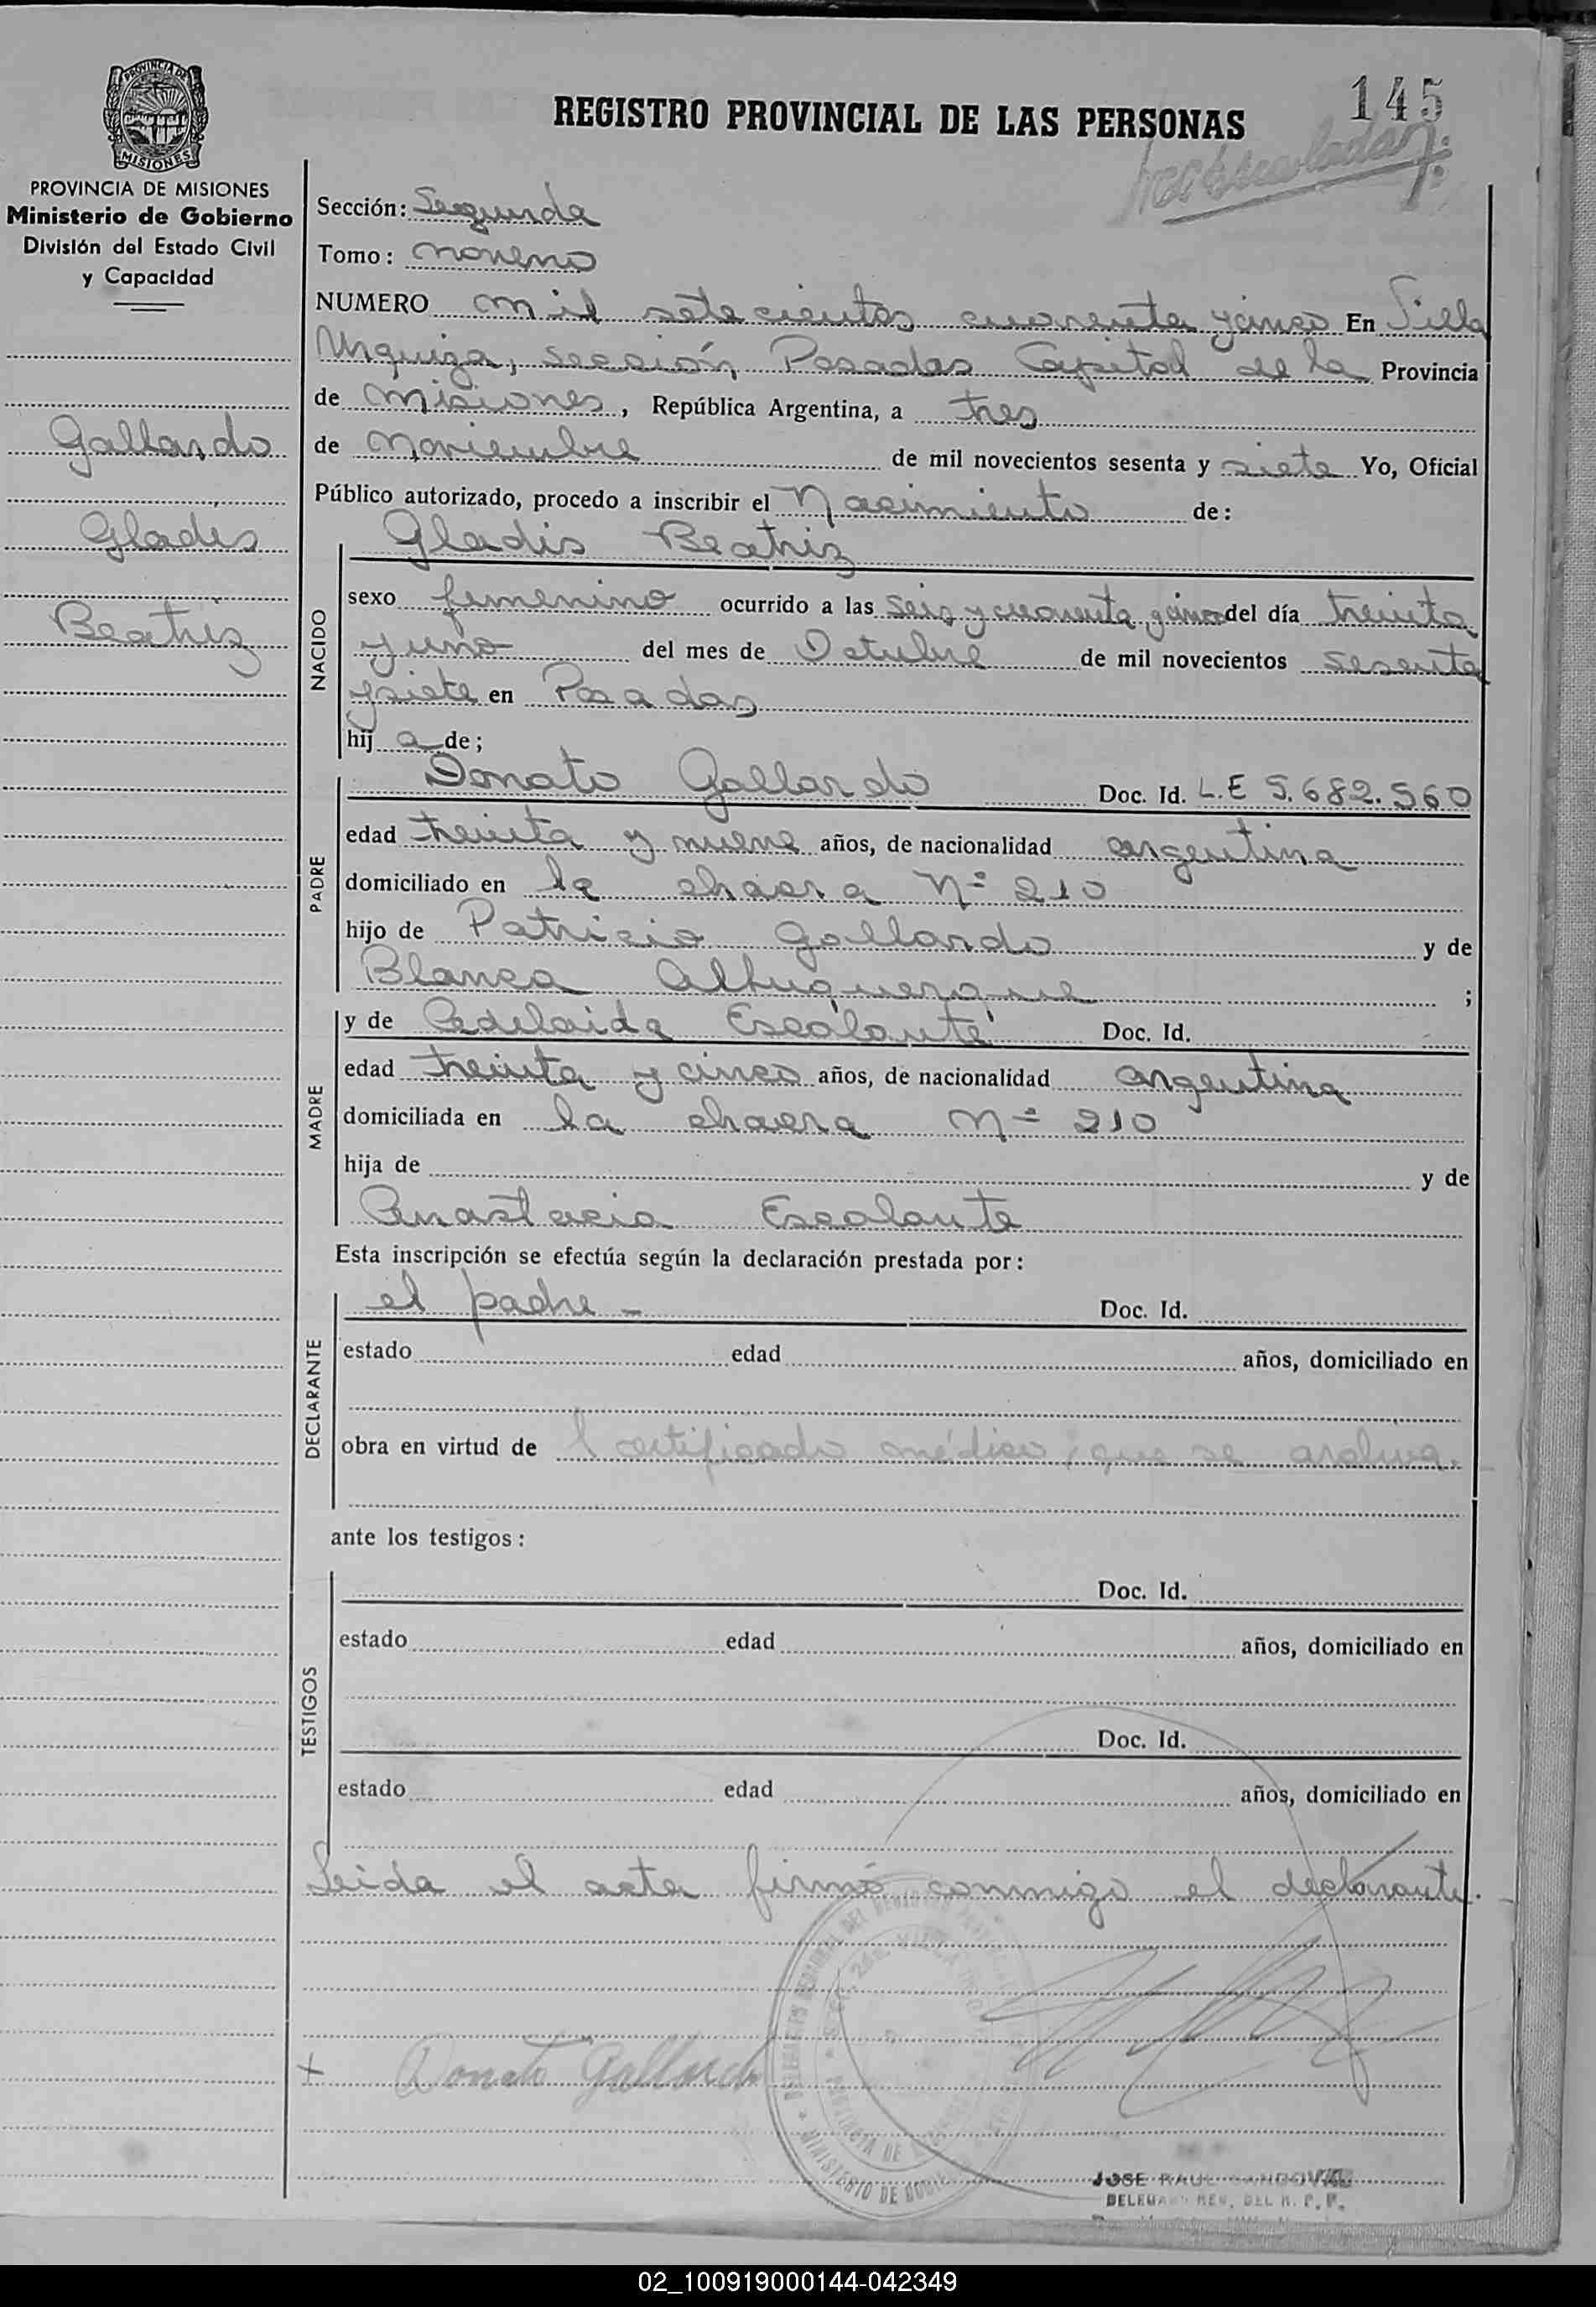 PROVINCIA DE
MISIONES
PROVINCIA DE MISIONES
Ministerio de Gobierno
División del Estado Civil
y Capacidad
Gallardo
Gladis
Beatriz
145
REGISTRO PROVINCIAL DE LAS PERSONAS
Sección: Segunda
Tomo: noveno
NUMERO mil setecientos cuarenta y cinco En Villa
Urquiza, sección Posadas Capital de la Provincia
de Misiones, República Argentina, a tres
de Noviembre de mil novecientos sesenta y siete Yo, Oficial
Público autorizado, procedo a inscribir el Nacimiento de:
Gladis Beatriz
NACIDO
sexo femenino ocurrido a las seis y cuarenta y cinco del día treinta
y uno del mes de Octubre de mil novecientos sesenta
y siete en Posadas
hij a de;
Donato Gallardo Doc. Id. L.E 5.682.560
PADRE
edad treinta y nueve años, de nacionalidad argentina
domiciliado en la chacra Nº 210
hijo de Patricio Gallardo y de
Blanca Albuquerque ;
y de Adelaida Escalante Doc. Id.
MADRE
edad treinta y cinco años, de nacionalidad argentina
domiciliada en la chacra Nº 210
hija de y de
Anastacia Escalante
Esta inscripción se efectúa según la declaración prestada por:
el padre - Doc. Id.
DECLARANTE
estado edad años, domiciliado en
obra en virtud de l certificado médico, que se archiva.
ante los testigos:
Doc. Id.
TESTIGOS
estado edad años, domiciliado en
Doc. Id.
estado edad años, domiciliado en
Leida el acta firmó conmigo el declarante.
Donato Gallardo
MINISTERIO DE GOBIERNO
PROVINCIA DE
JOSE RAUL SANDOVAL
DELEGADO REG. DEL R. P. P.
02_100919000144-042349